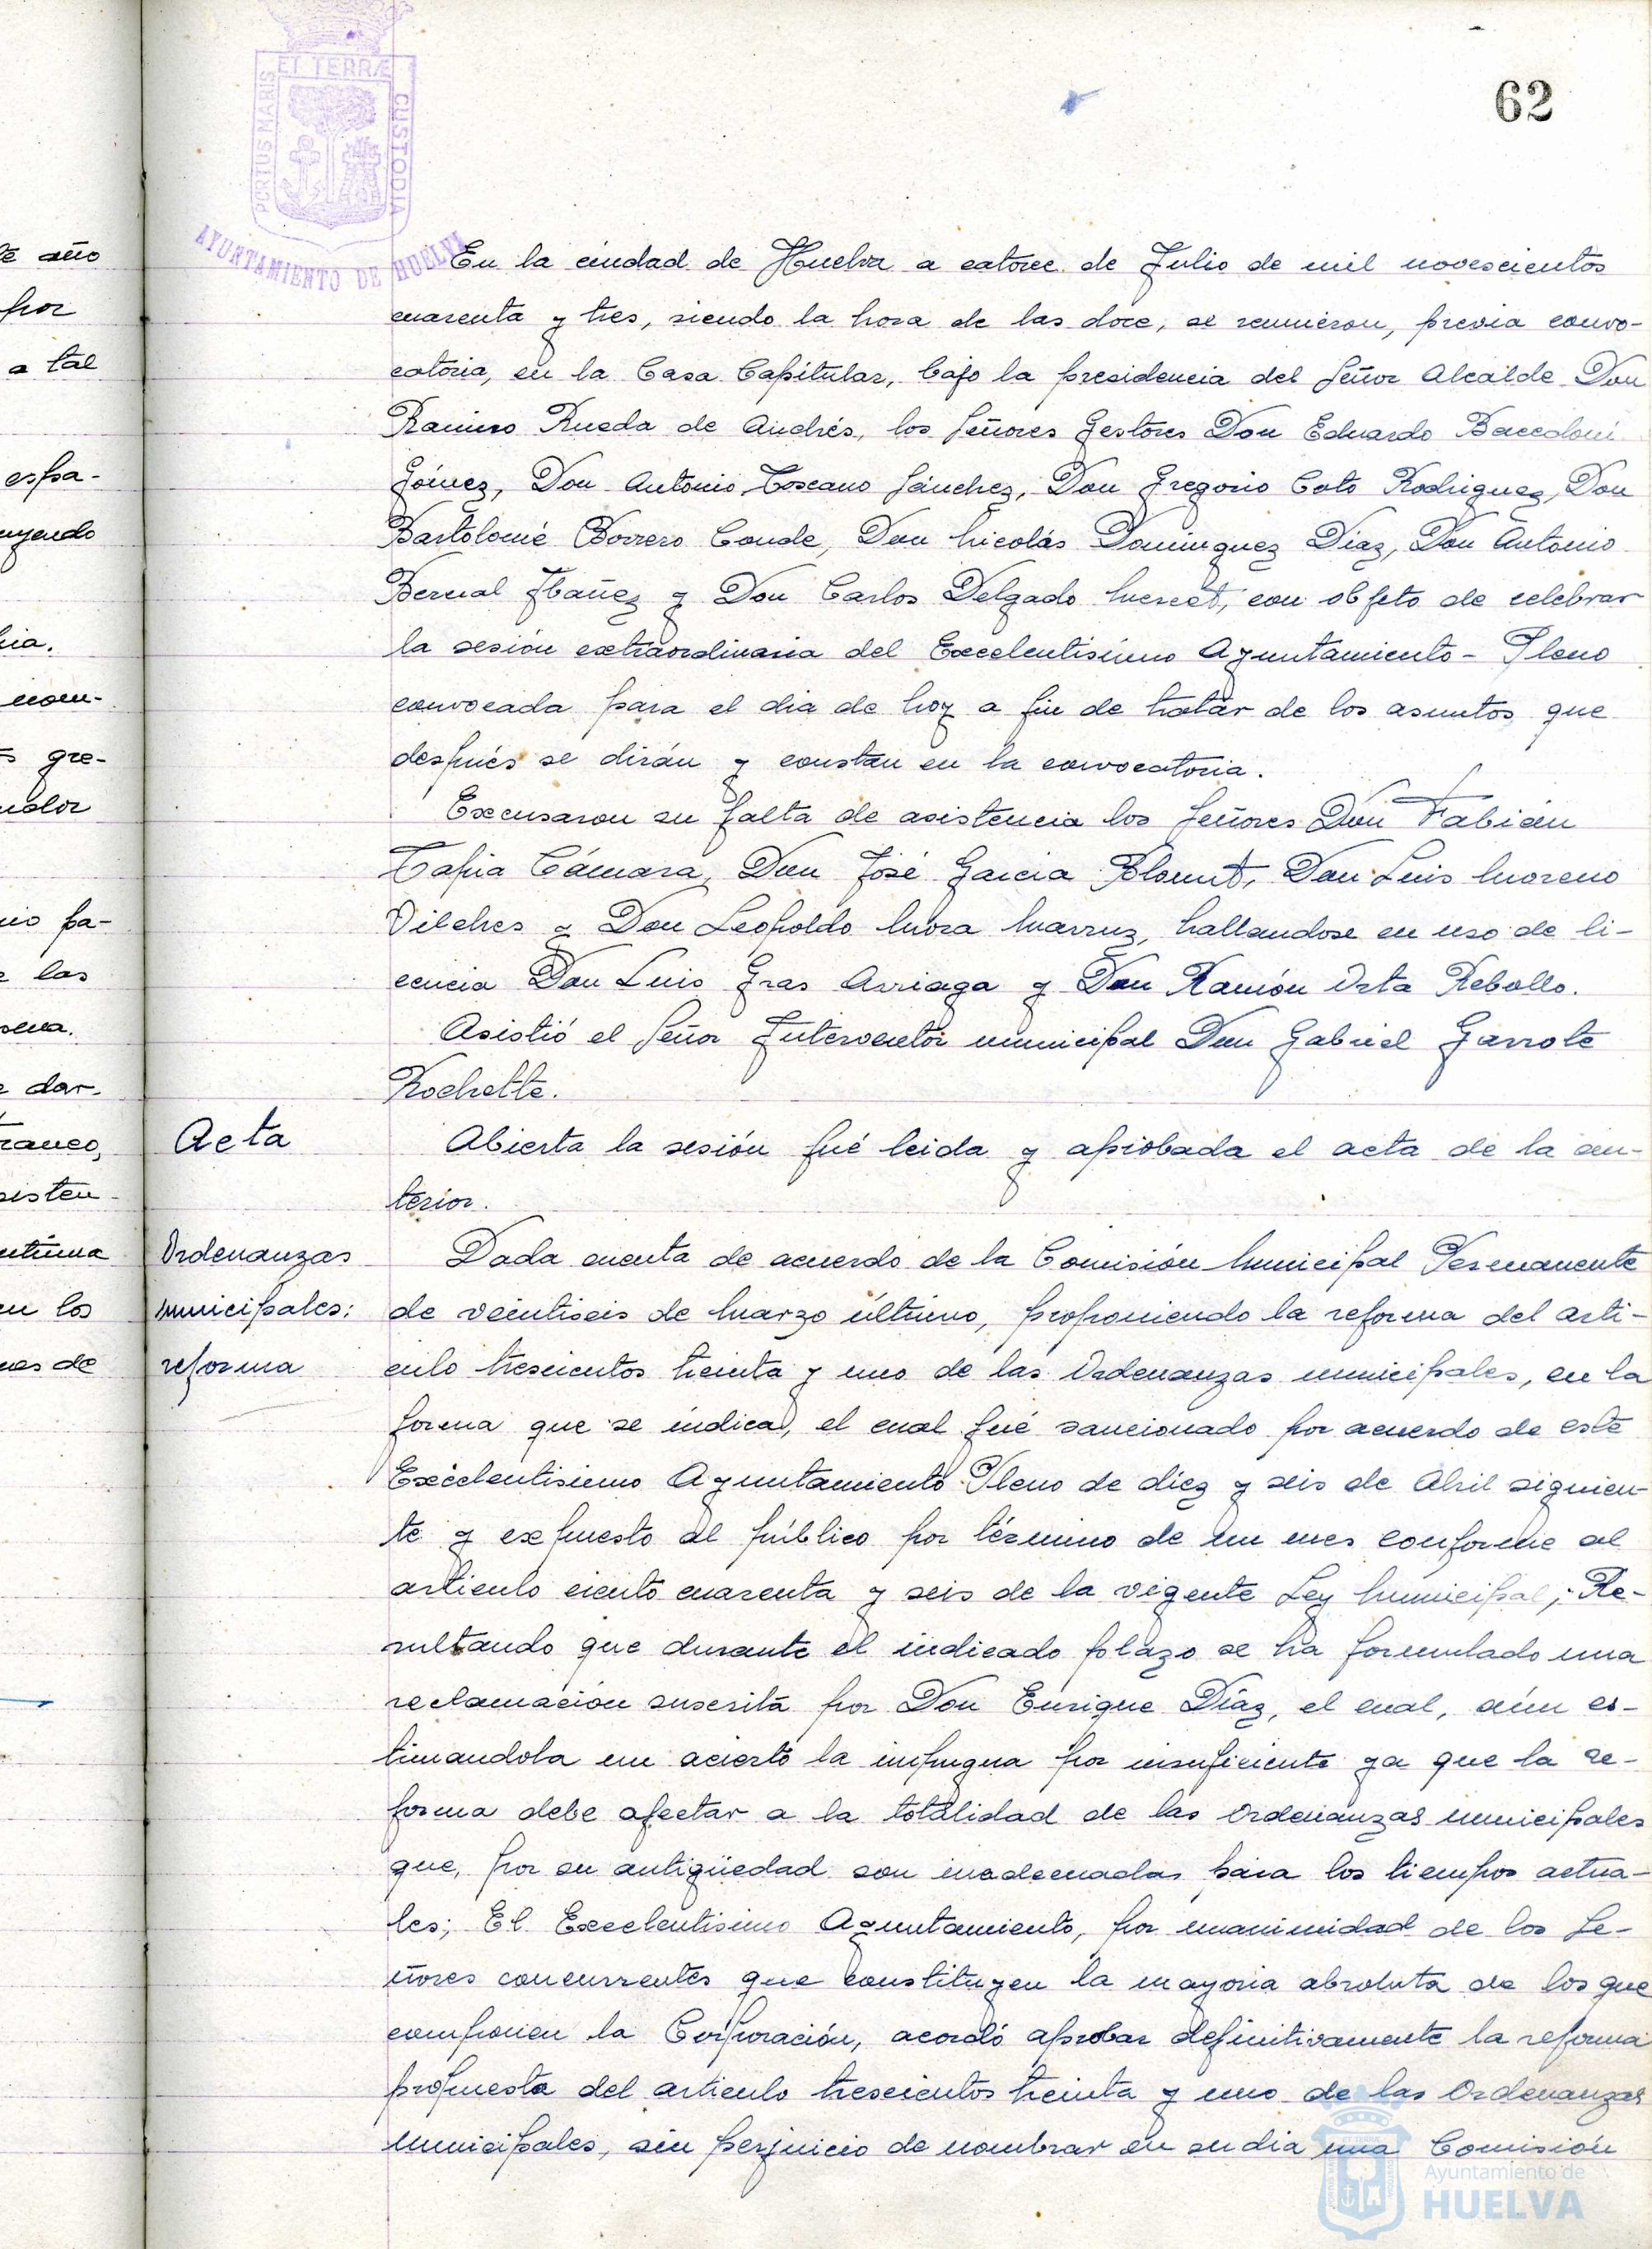 62
PORTUS MARIS ET TERRÆ CUSTODIA
AYUNTAMIENTO DE HUELVA
En la ciudad de Huelva a catorce de Julio de mil novescientos
cuarenta y tres, siendo la hora de las doce, se reunieron, previa convo-
catoria, en la Casa Capitular, bajo la presidencia del Señor Alcalde Don
Ramiro Rueda de Andrés, los Señores Gestores Don Eduardo Baccaloni
Gómez, Don Antonio Toscano Sánchez, Don Gregorio Coto Rodriguez, Don
Bartolomé Borrero Conde, Don Nicolás Dominguez Diaz, Don Antonio
Bernal Ibañez y Don Carlos Delgado Mercet, con objeto de celebrar
la sesión extraordinaria del Excelentisimo Ayuntamiento - Pleno
convocada para el dia de hoy a fin de tratar de los asuntos que
después se dirán y constan en la convocatoria.
Excusaron su falta de asistencia los Señores Don Fabián
Tapia Cámara, Don José Garcia Blount, Don Luis Moreno
Vilches y Don Leopoldo Mora Marruz, hallandose en uso de li-
cencia Don Luis Gras Arriaga y Don Ramón Orta Rebollo.
Asistió el Señor Interventor municipal Don Gabriel Garrote
Rochette.
Acta
Abierta la sesión fué leida y aprobada el acta de la an-
terior.
Ordenanzas
municipales:
reforma
Dada cuenta de acuerdo de la Comisión Municipal Permanente
de veintiseis de Marzo último, proponiendo la reforma del arti-
culo trescientos treinta y uno de las Ordenanzas municipales, en la
forma que se indica, el cual fué sancionado por acuerdo de este
Excelentisimo Ayuntamiento Pleno de diez y seis de Abril siguien-
te y expuesto al público por término de un mes conforme al
articulo ciento cuarenta y seis de la vigente Ley Municipal; Re-
sultando que durante el indicado plazo se ha formulado una
reclamación suscrita por Don Enrique Díaz, el cual, aún es-
timandola un acierto la impugna por insuficiente ya que la re-
forma debe afectar a la totalidad de las Ordenanzas municipales
que, por su antigüedad son inadecuadas para los tiempos actua-
les; El Excelentisimo Ayuntamiento, por unanimidad de los Se-
ñores concurrentes que constituyen la mayoria absoluta de los que
componen la Corporación, acordó aprobar definitivamente la reforma
propuesta del articulo trescientos treinta y uno de las Ordenanzas
municipales, sin perjuicio de nombrar en su dia una Comisión
Ayuntamiento de
HUELVA